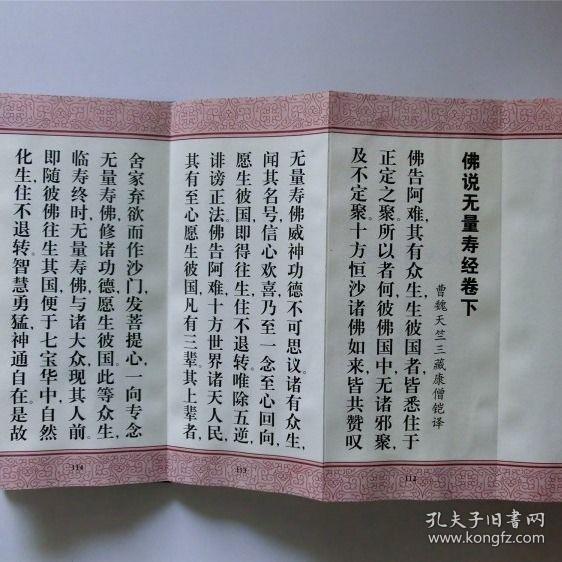 佛说无量寿经卷下
曹魏天竺三藏康僧铠译
佛告阿难，其有众生生彼国者皆悉住于
正定之聚。所以者何彼佛国中，无诸邪聚，
及不定聚。十方恒沙诸佛如来，皆共赞叹
112
无量寿佛威神功德不可思议。诸有众生，
闻其名号，信心欢喜，乃至一念，至心回向，
愿生彼国，即得往生，住不退转。唯除五逆，
诽谤正法。佛告阿难，十方世界，诸天人民，
其有至心愿生彼国，凡有三辈。其上辈者，
113
舍家弃欲而作沙门，发菩提心，一向专念
无量寿佛，修诸功德，愿生彼国。此等众生，
临寿终时，无量寿佛，与诸大众，现其人前。
即随彼佛往生其国，便于七宝华中，自然
化生，住不退转。智慧勇猛，神通自在。是故
114
孔夫子旧书网
www.kongfz.com